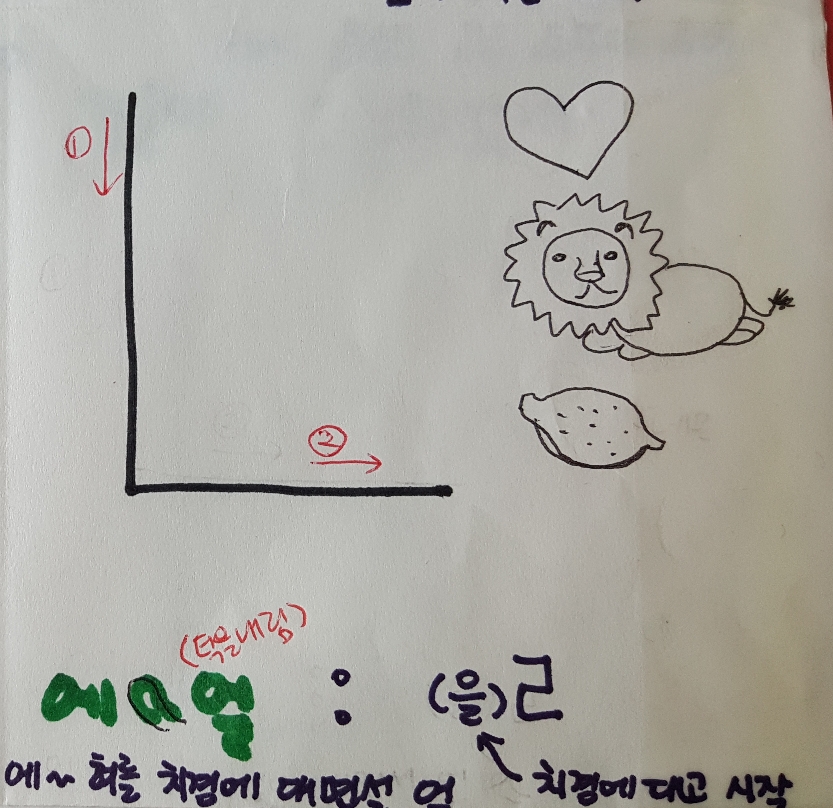 ①
②
(턱을내림)
에 얼 : (을)ㄹ
에~ 혀를 치경에 대면서 얼 치경에 대고 시작